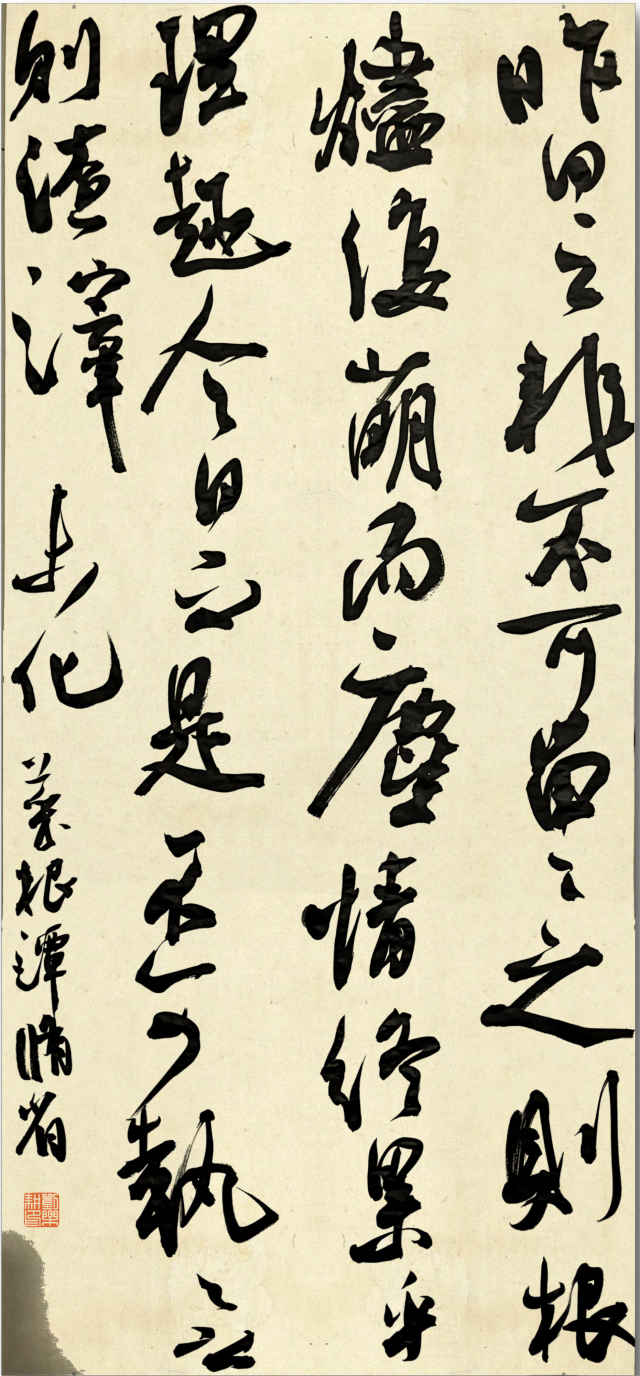 昨日之非不可留〻之則根
燼復萌而塵情終累乎
理趣今日之是不可執〻之
則渣滓未化 菜根譚脩省